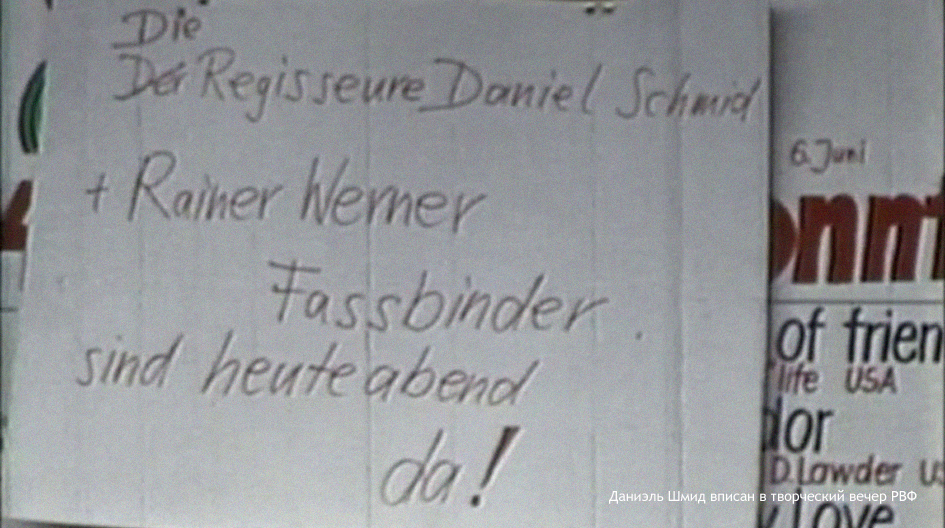 Die
Der Regisseure Daniel Schmid
+ Rainer Werner
Fassbinder
sind heute abend
da!
6. Juni
onnt
of frien
life USA
dor
D. Lowder U
Love
Даниэль Шмид вписан в творческий вечер РВФ